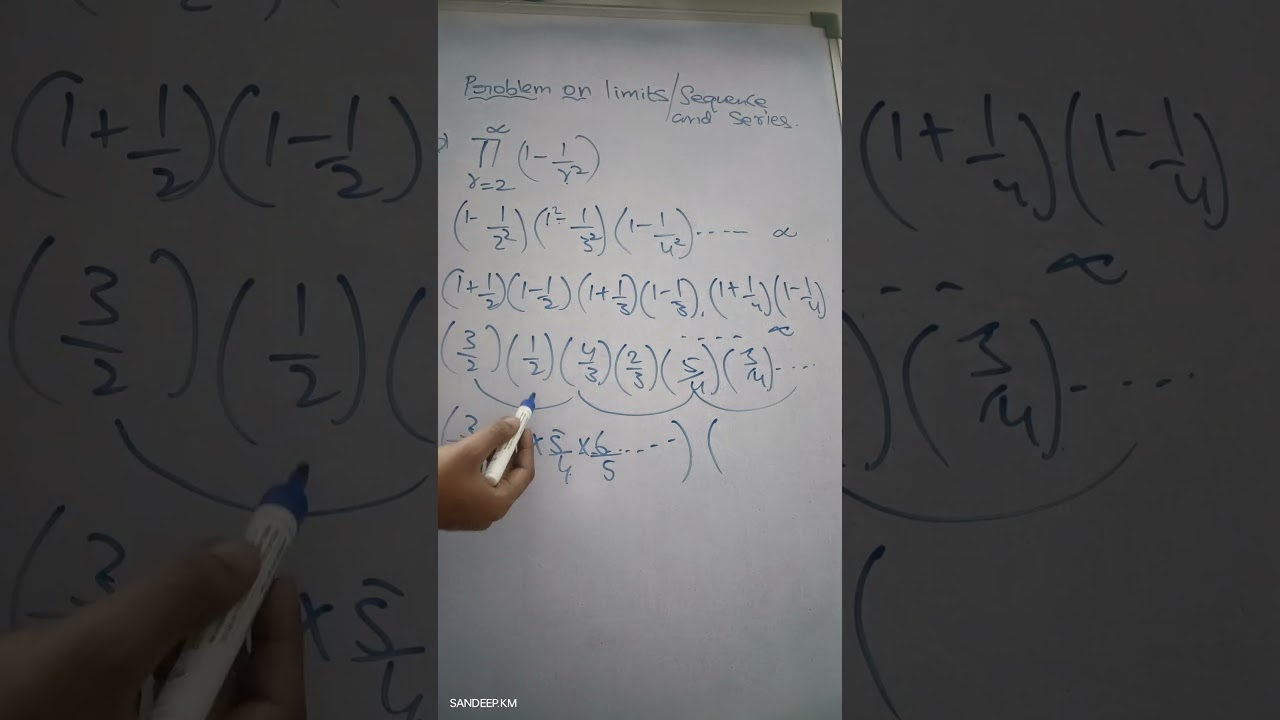 Problem on limits/Sequence
and series.
∞ ∏ r=2 (1 - 1/r²)
(1 - 1/2²) (1² - 1/3²) (1 - 1/4²) ---- ∞
(1 + 1/2) (1 - 1/2) (1 + 1/3) (1 - 1/3) . (1 + 1/4) (1 - 1/4)
---- ∞
(3/2) (1/2) (4/3) (2/3) (5/4) (3/4) ----
( × 5/4 × 6/5 ---- ) (
SANDEEP.KM